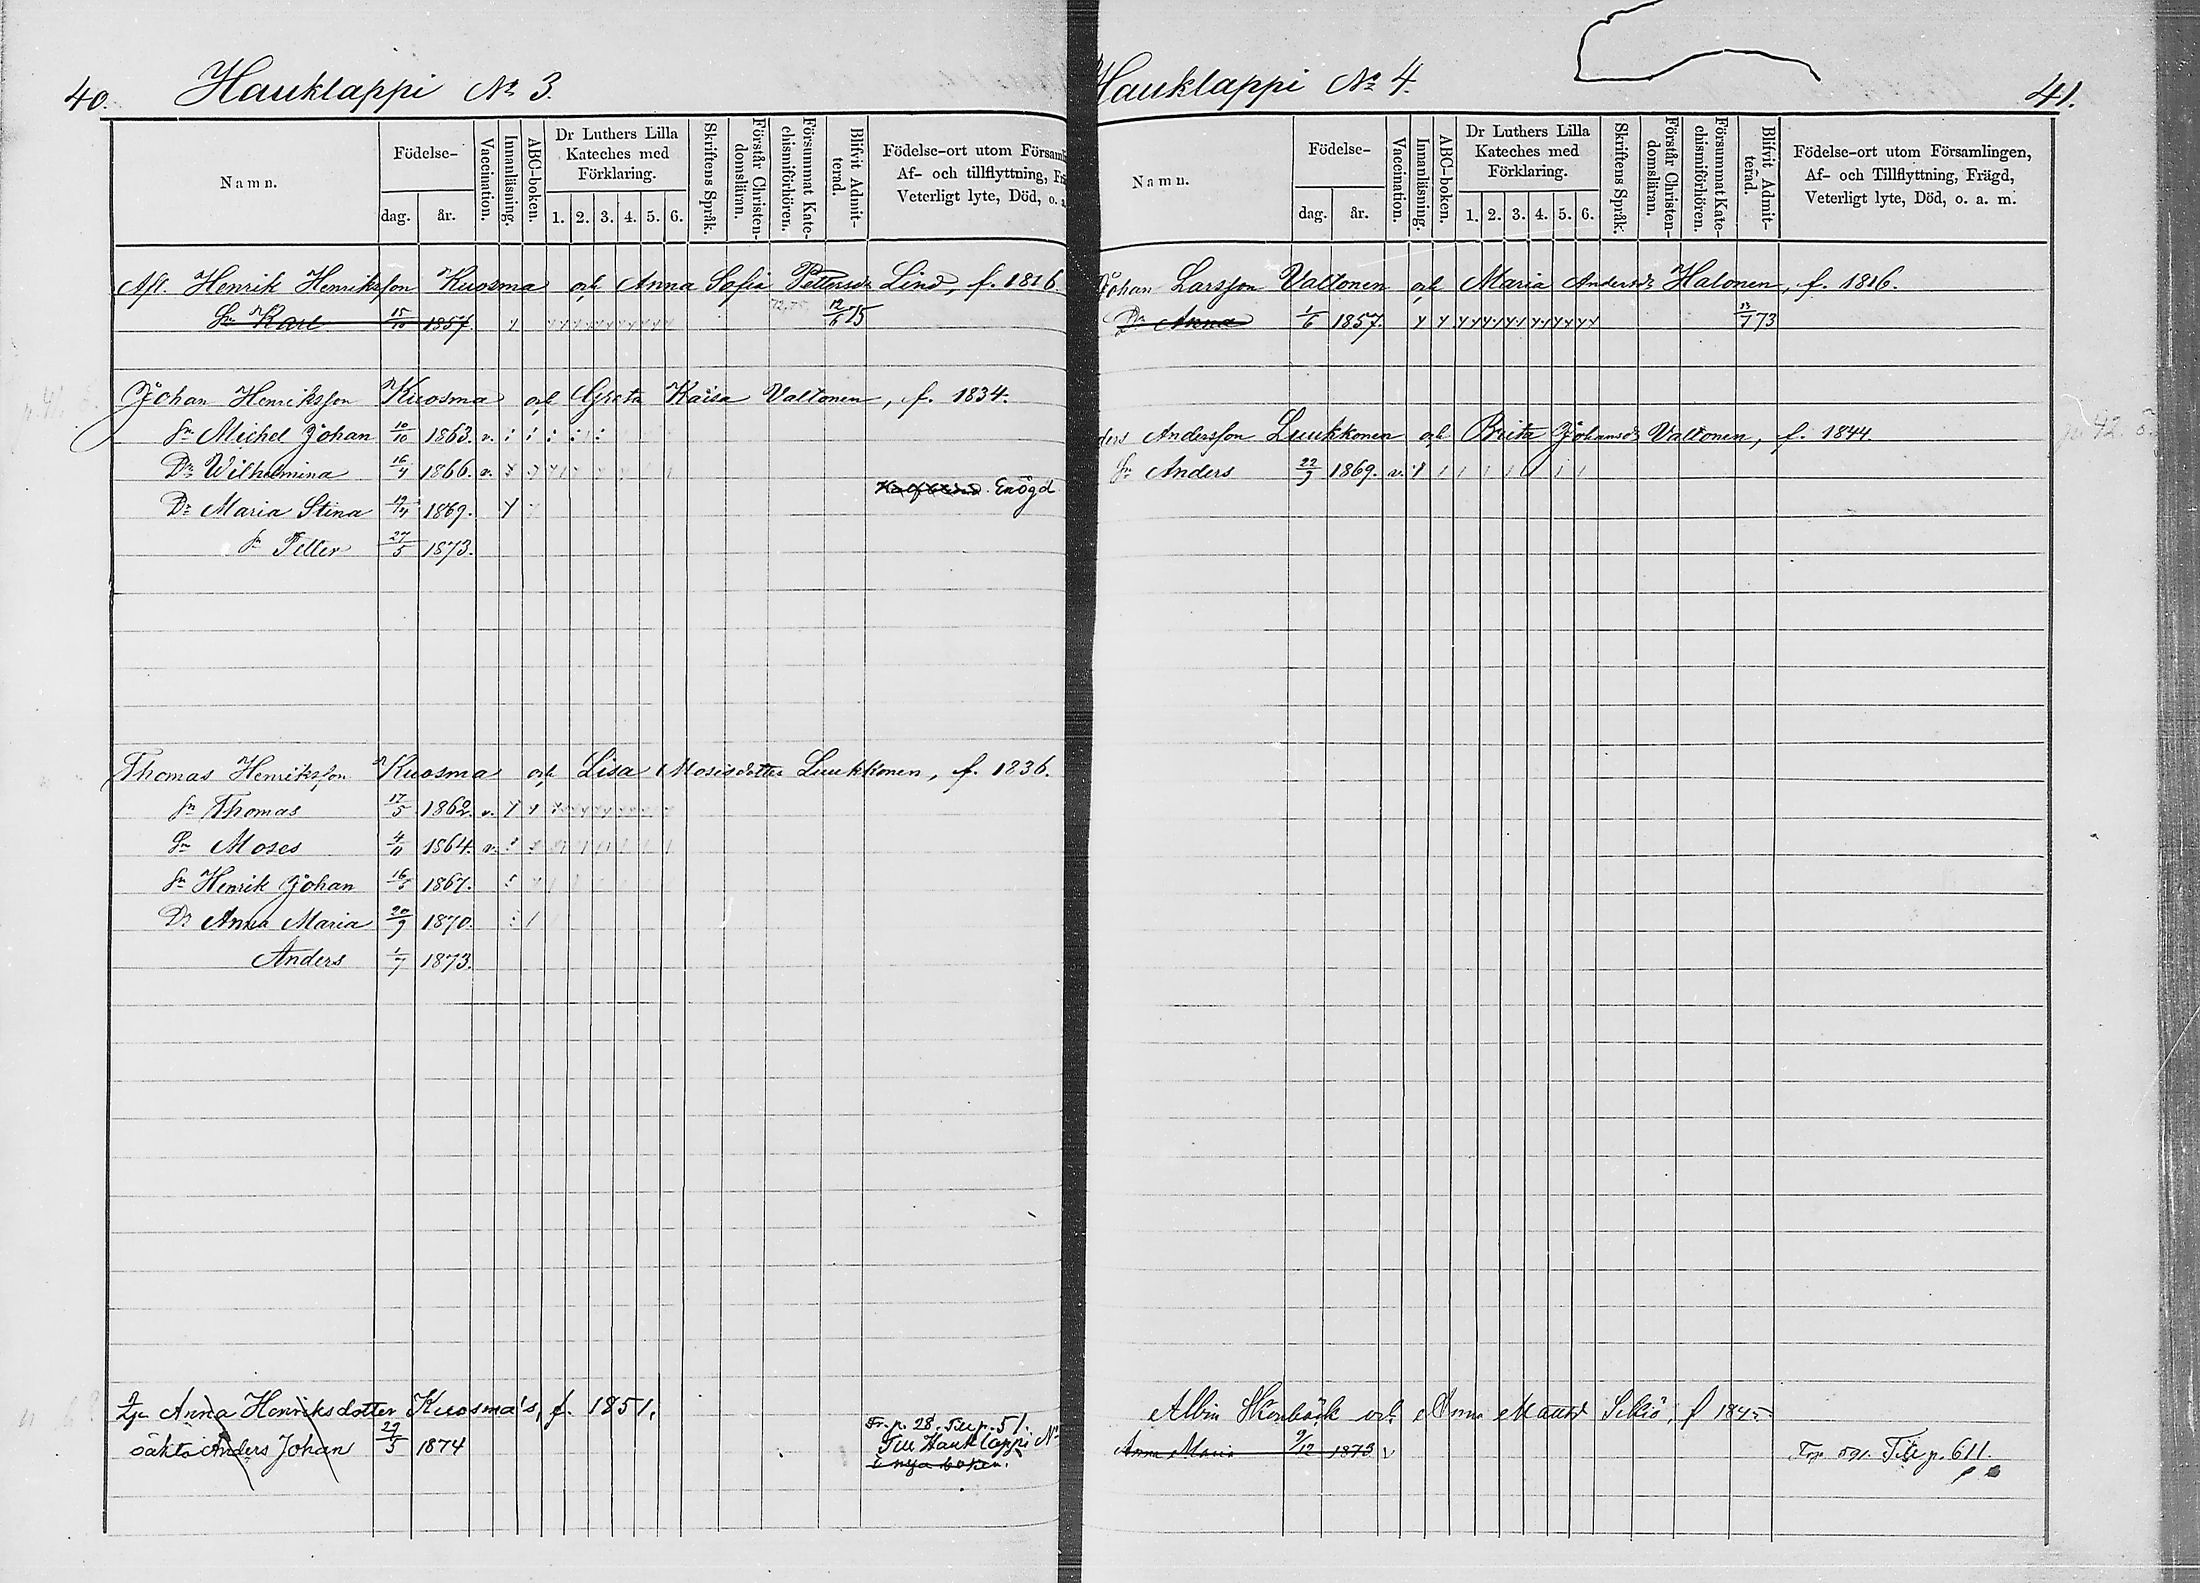 40. Hauklappi № 3.
Namn.
Födelse-
dag. år.
Vaccination.
Innanläsning.
ABC-boken.
Dr Luthers Lilla
Kateches med
Förklaring.
1. 2. 3. 4. 5. 6.
Skriftens Språk.
Förstår Christen-
domsläran.
Försummat Kate-
chismiförhören.
Blifvit Admit-
terad.
Födelse-ort utom Församl
Af- och tillflyttning, Frä
Veterligt lyte, Död, o. a.
Afl. Henrik Henriksson Kuosma och Anna Sofia Pettersdr Lind, f. 1816.
Sn Karl 15/10 1857. 12/6 75
Johan Henriksson Kuosma och Greta Kaisa Valtonen, f. 1834.
Sn Michel Johan 10/10 1863. v.
Dr Wilhelmina 16/4 1866. v.
Enögd
Dr Maria Stina 19/4 1869.
Sn Petter 27/5 1873.
Thomas Henriksson Kuosma och Lisa Mosisdotter Luukkonen, f. 1836.
Sn Thomas 17/5 1862. v.
Sn Moses 4/11 1864. v.
Sn Henrik Johan 16/5 1867.
Dr Anna Maria 20/9 1870.
Anders 1/7 1873.
Anna Henriksdotter Kuosma's, f. 1851.
Fr. p. 28. Till p. 51.
oäkta Anders Johan 27/5 1874
Till Hauklappi №
i nya boken.
Hauklappi № 4. 41.
Namn.
Födelse-
dag. år.
Vaccination.
Innanläsning.
ABC-boken.
Dr Luthers Lilla
Kateches med
Förklaring.
1. 2. 3. 4. 5. 6.
Skriftens Språk.
Förstår Christen-
domsläran.
Försummat Kate-
chismiförhören.
Blifvit Admit-
terad.
Födelse-ort utom Församlingen,
Af- och Tillflyttning, Frägd,
Veterligt lyte, Död, o. a. m.
Johan Larsson Valtonen och Maria Andersdr Halonen, f. 1816.
Dr Anna 1/6 1857. 13/7 73
ders Andersson Luukkonen och Brita Johansdr Valtonen, f. 1844.
Sn Anders 22/9 1869. v.
Albin och Anna f 1845.
Anna Maria 9/12 1873 v
Till p. 611.